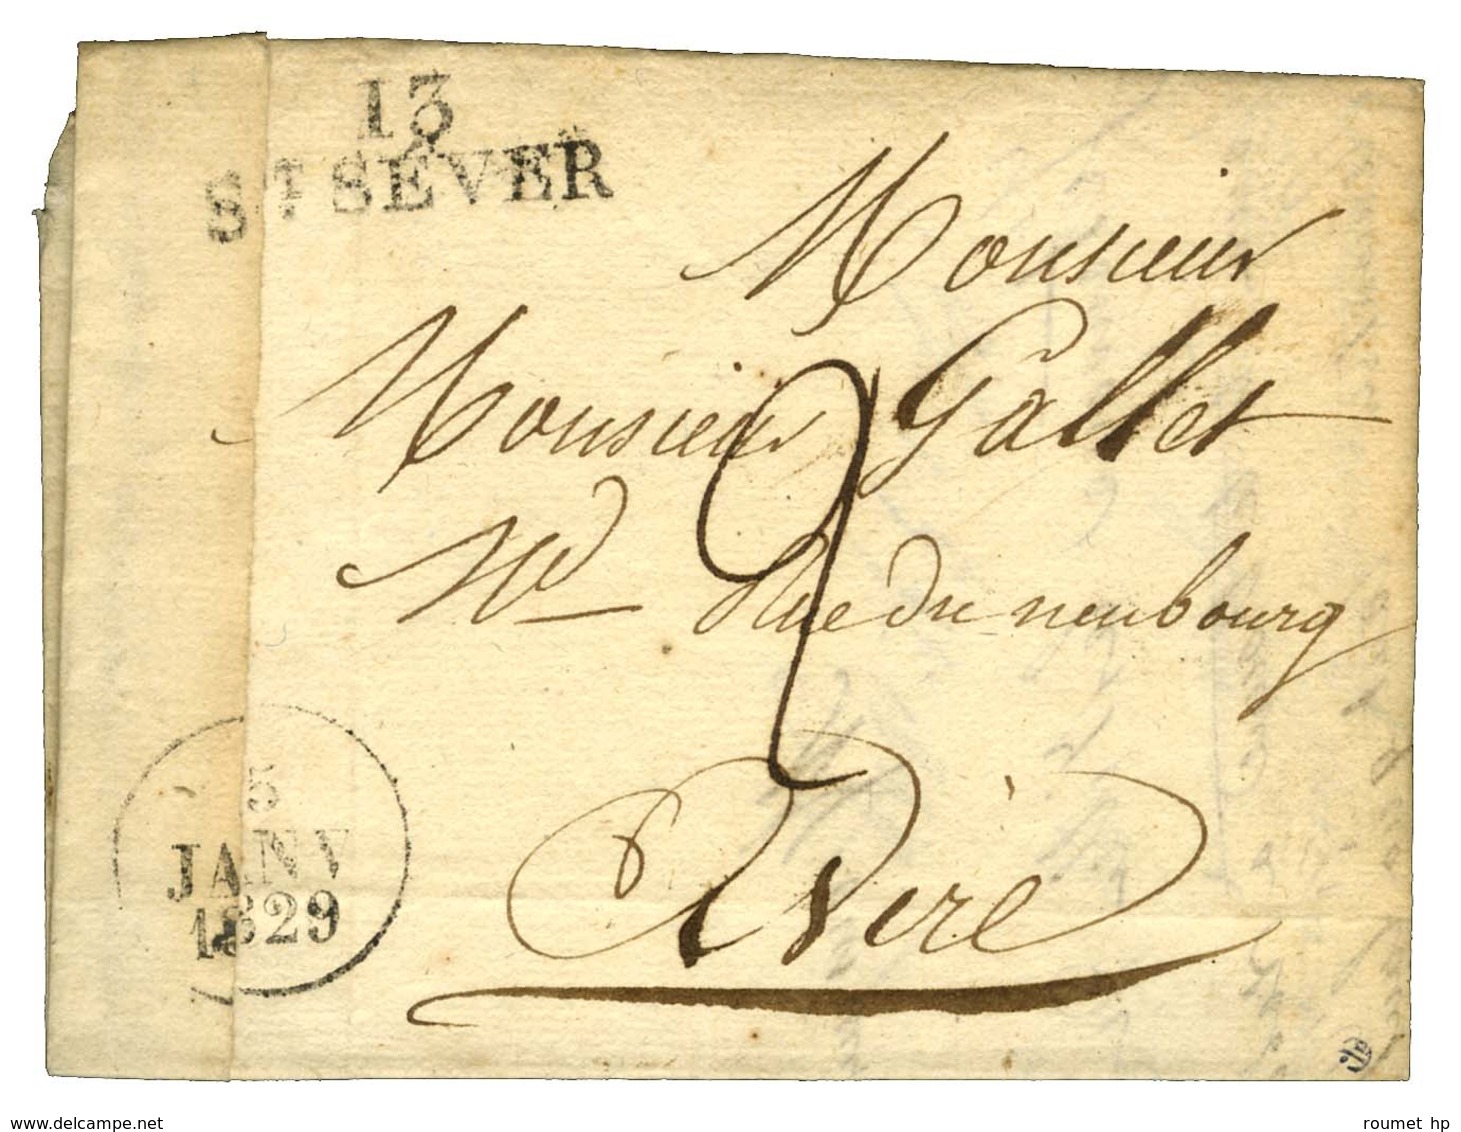 13
ST SEVER
Monsieur
Monsieur Gallet
Md Rue du neubourg
2
A Vire
5
JANV
1829
roumet hp